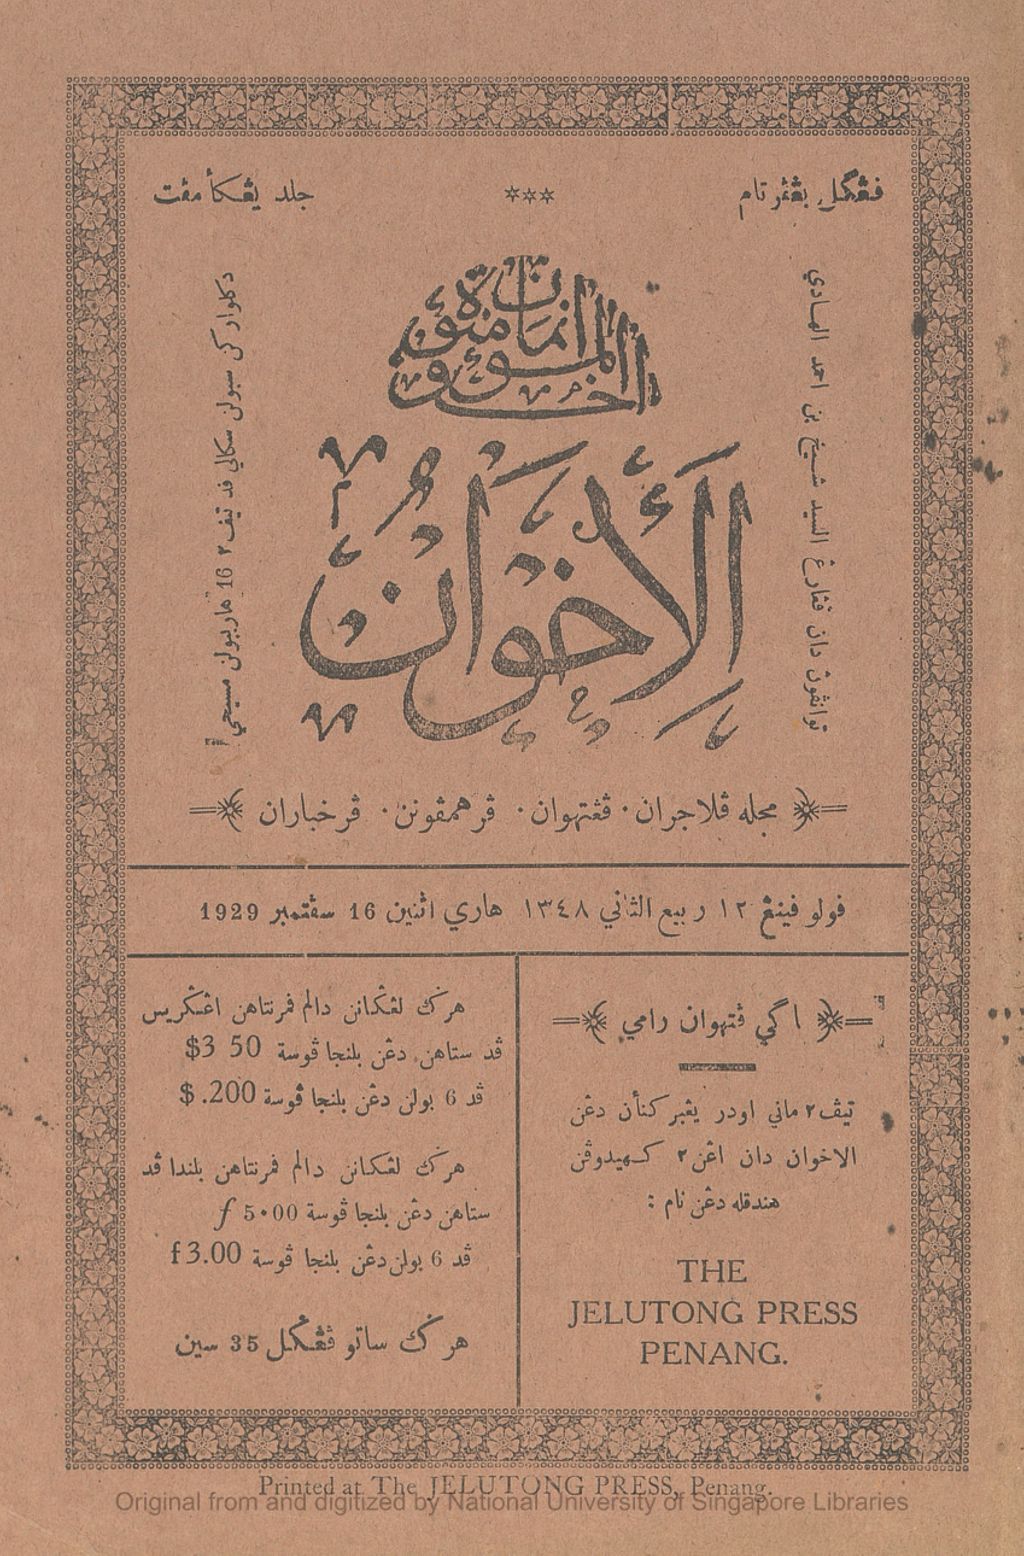 ڤڠݢل يڠڤرتام
***
جلد يڠكأمڤت
اخوان المؤمنون امناء
الإخوان
توانڤوڽ دان ڤڠارڠ السيد شيخ بن احمد الهادي
دكلواركن سبولن سكالي ڤد تيڤ٢ 16 هاريبولن مسيحي
مجله ڤلاجران · ڤڠتهوان · ڤرهمڤونن · ڤرخباران
ڤولو ڤينڠ ١٢ ربيع الثاني ١٣٤٨ هاري اثنين 16 سڤتمبر 1929
اݢي ڤتهوان رامي
تيڤ٢ ماني اودر يڠبركنأن دڠن
الاخوان دان اڠن٢ كهيدوڤن
هندقله دڠن نام :
THE
JELUTONG PRESS
PENANG.
هرݢ لڠݢانن دالم ڤرنتاهن اڠݢريس
ڤد ستاهن دڠن بلنجا ڤوسة 50 3$
ڤد 6 بولن دڠن بلنجا ڤوسة 200. $
هرݢ لڠݢانن دالم ڤرنتاهن بلندا ڤد
ستاهن دڠن بلنجا ڤوسة 5·00 f
ڤد 6 بولن دڠن بلنجا ڤوسة f 3.00
هرݢ ساتو ڤڠݢل 35 سين
Printed at The JELUTONG PRESS, Penang.
Original from and digitized by National University of Singapore Libraries